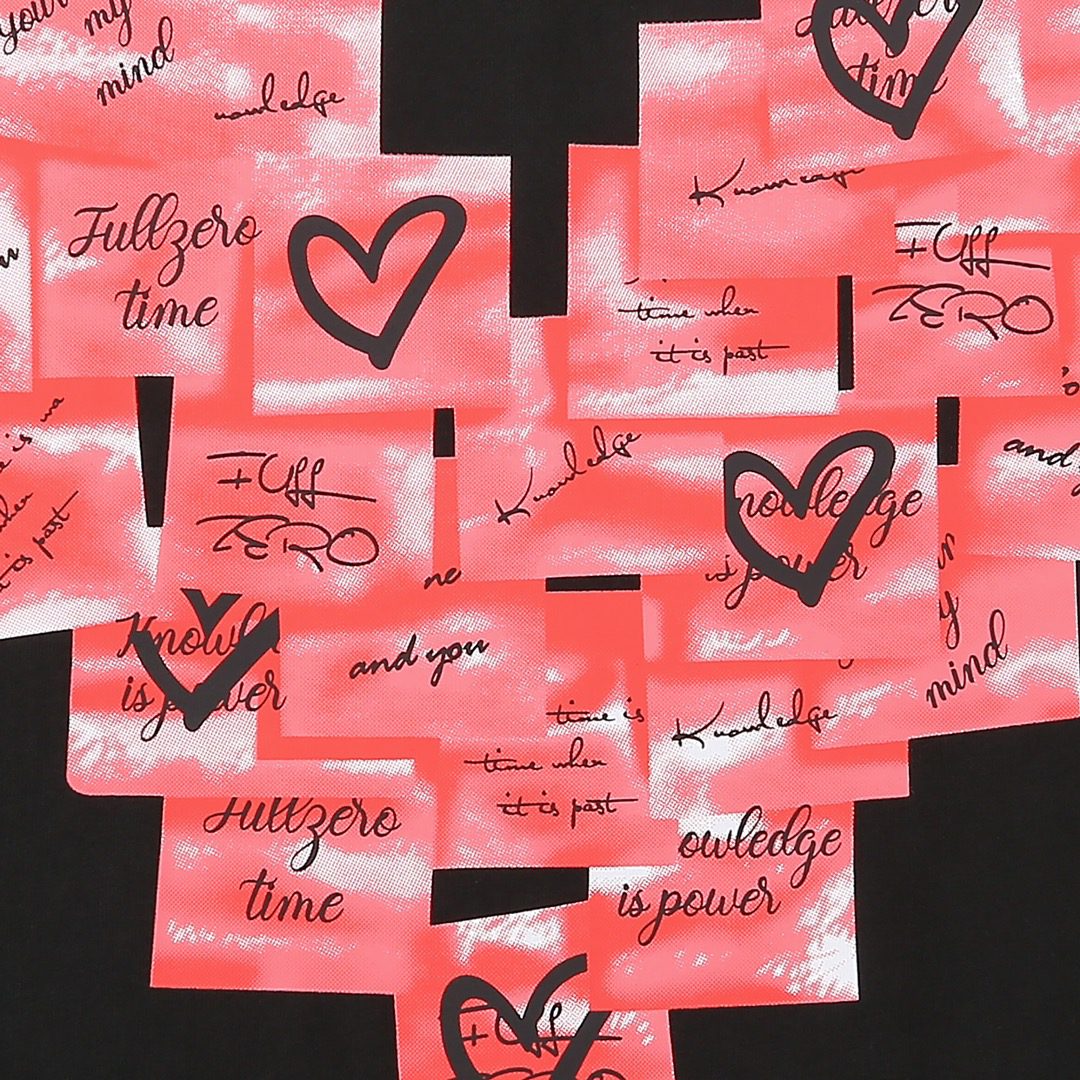 your
my
mind
time
Knowledge
Fullzero
time
FULL
ZERO
time when
it is past
Knowledge
FULL
ZERO
nowledge
is power
and
ne
and you
is power
mind
time is
Knowledge
time when
it is past
Fullzero
time
owledge
is power
FULL
is past